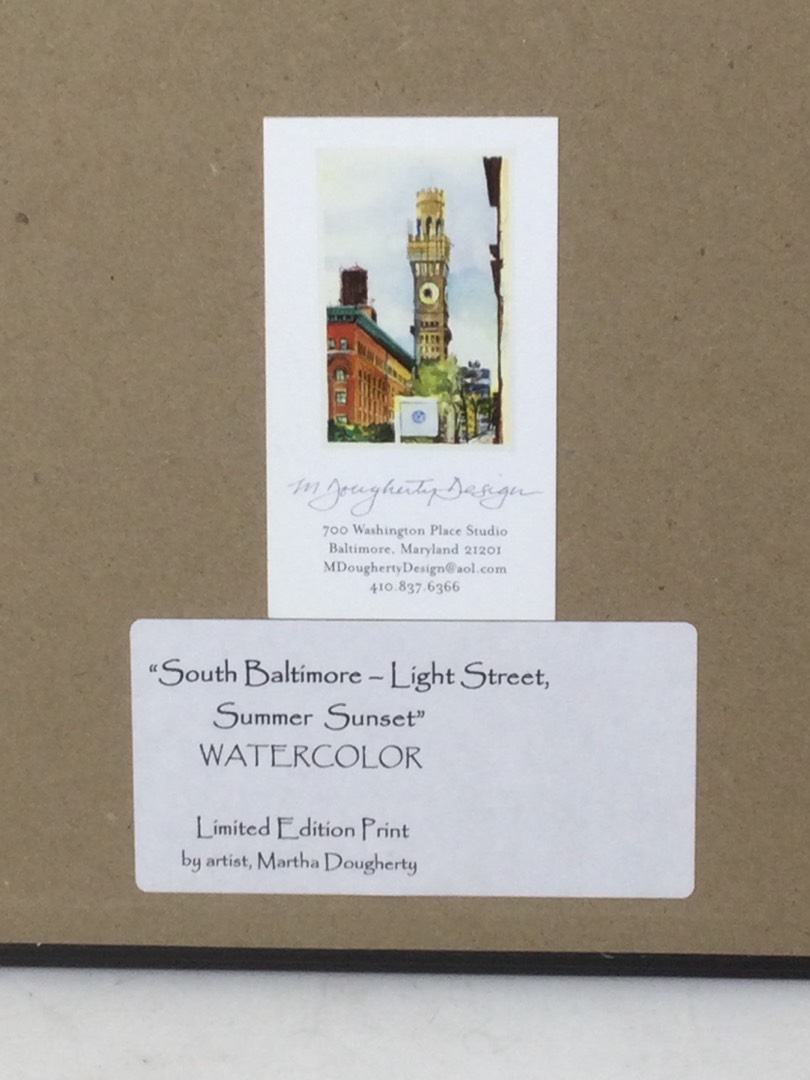 M Dougherty Design
700 Washington Place Studio
Baltimore, Maryland 21201
MDoughertyDesign@aol.com
410.837.6366
“South Baltimore – Light Street,
Summer Sunset”
WATERCOLOR
Limited Edition Print
by artist, Martha Dougherty